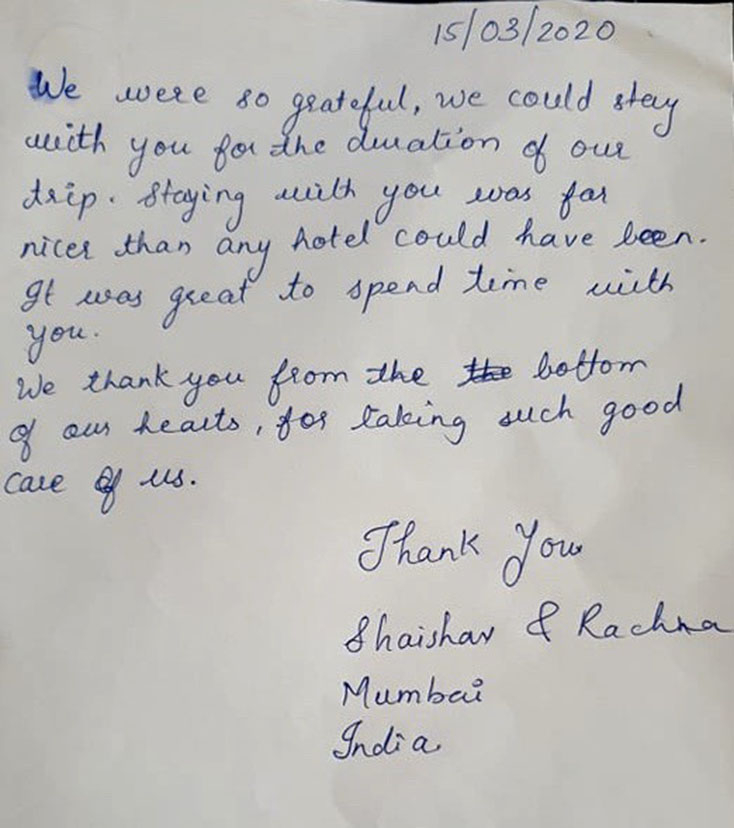 15/03/2020
We were so grateful, we could stay
with you for the duration of our
trip. Staying with you was far
nicer than any hotel could have been.
It was great to spend time with
you.
We thank you from the the bottom
of our hearts, for taking such good
care of us.
Thank You
Shaishav & Rachna
Mumbai
India